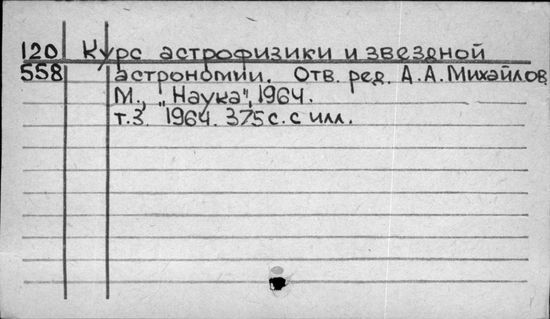 120 Курс астрофизики и звездной
558 астрономии. Отв. ред. А.А.Михайлов
М., "Наука", 1964.
т.3. 1964. 375 с. с илл.